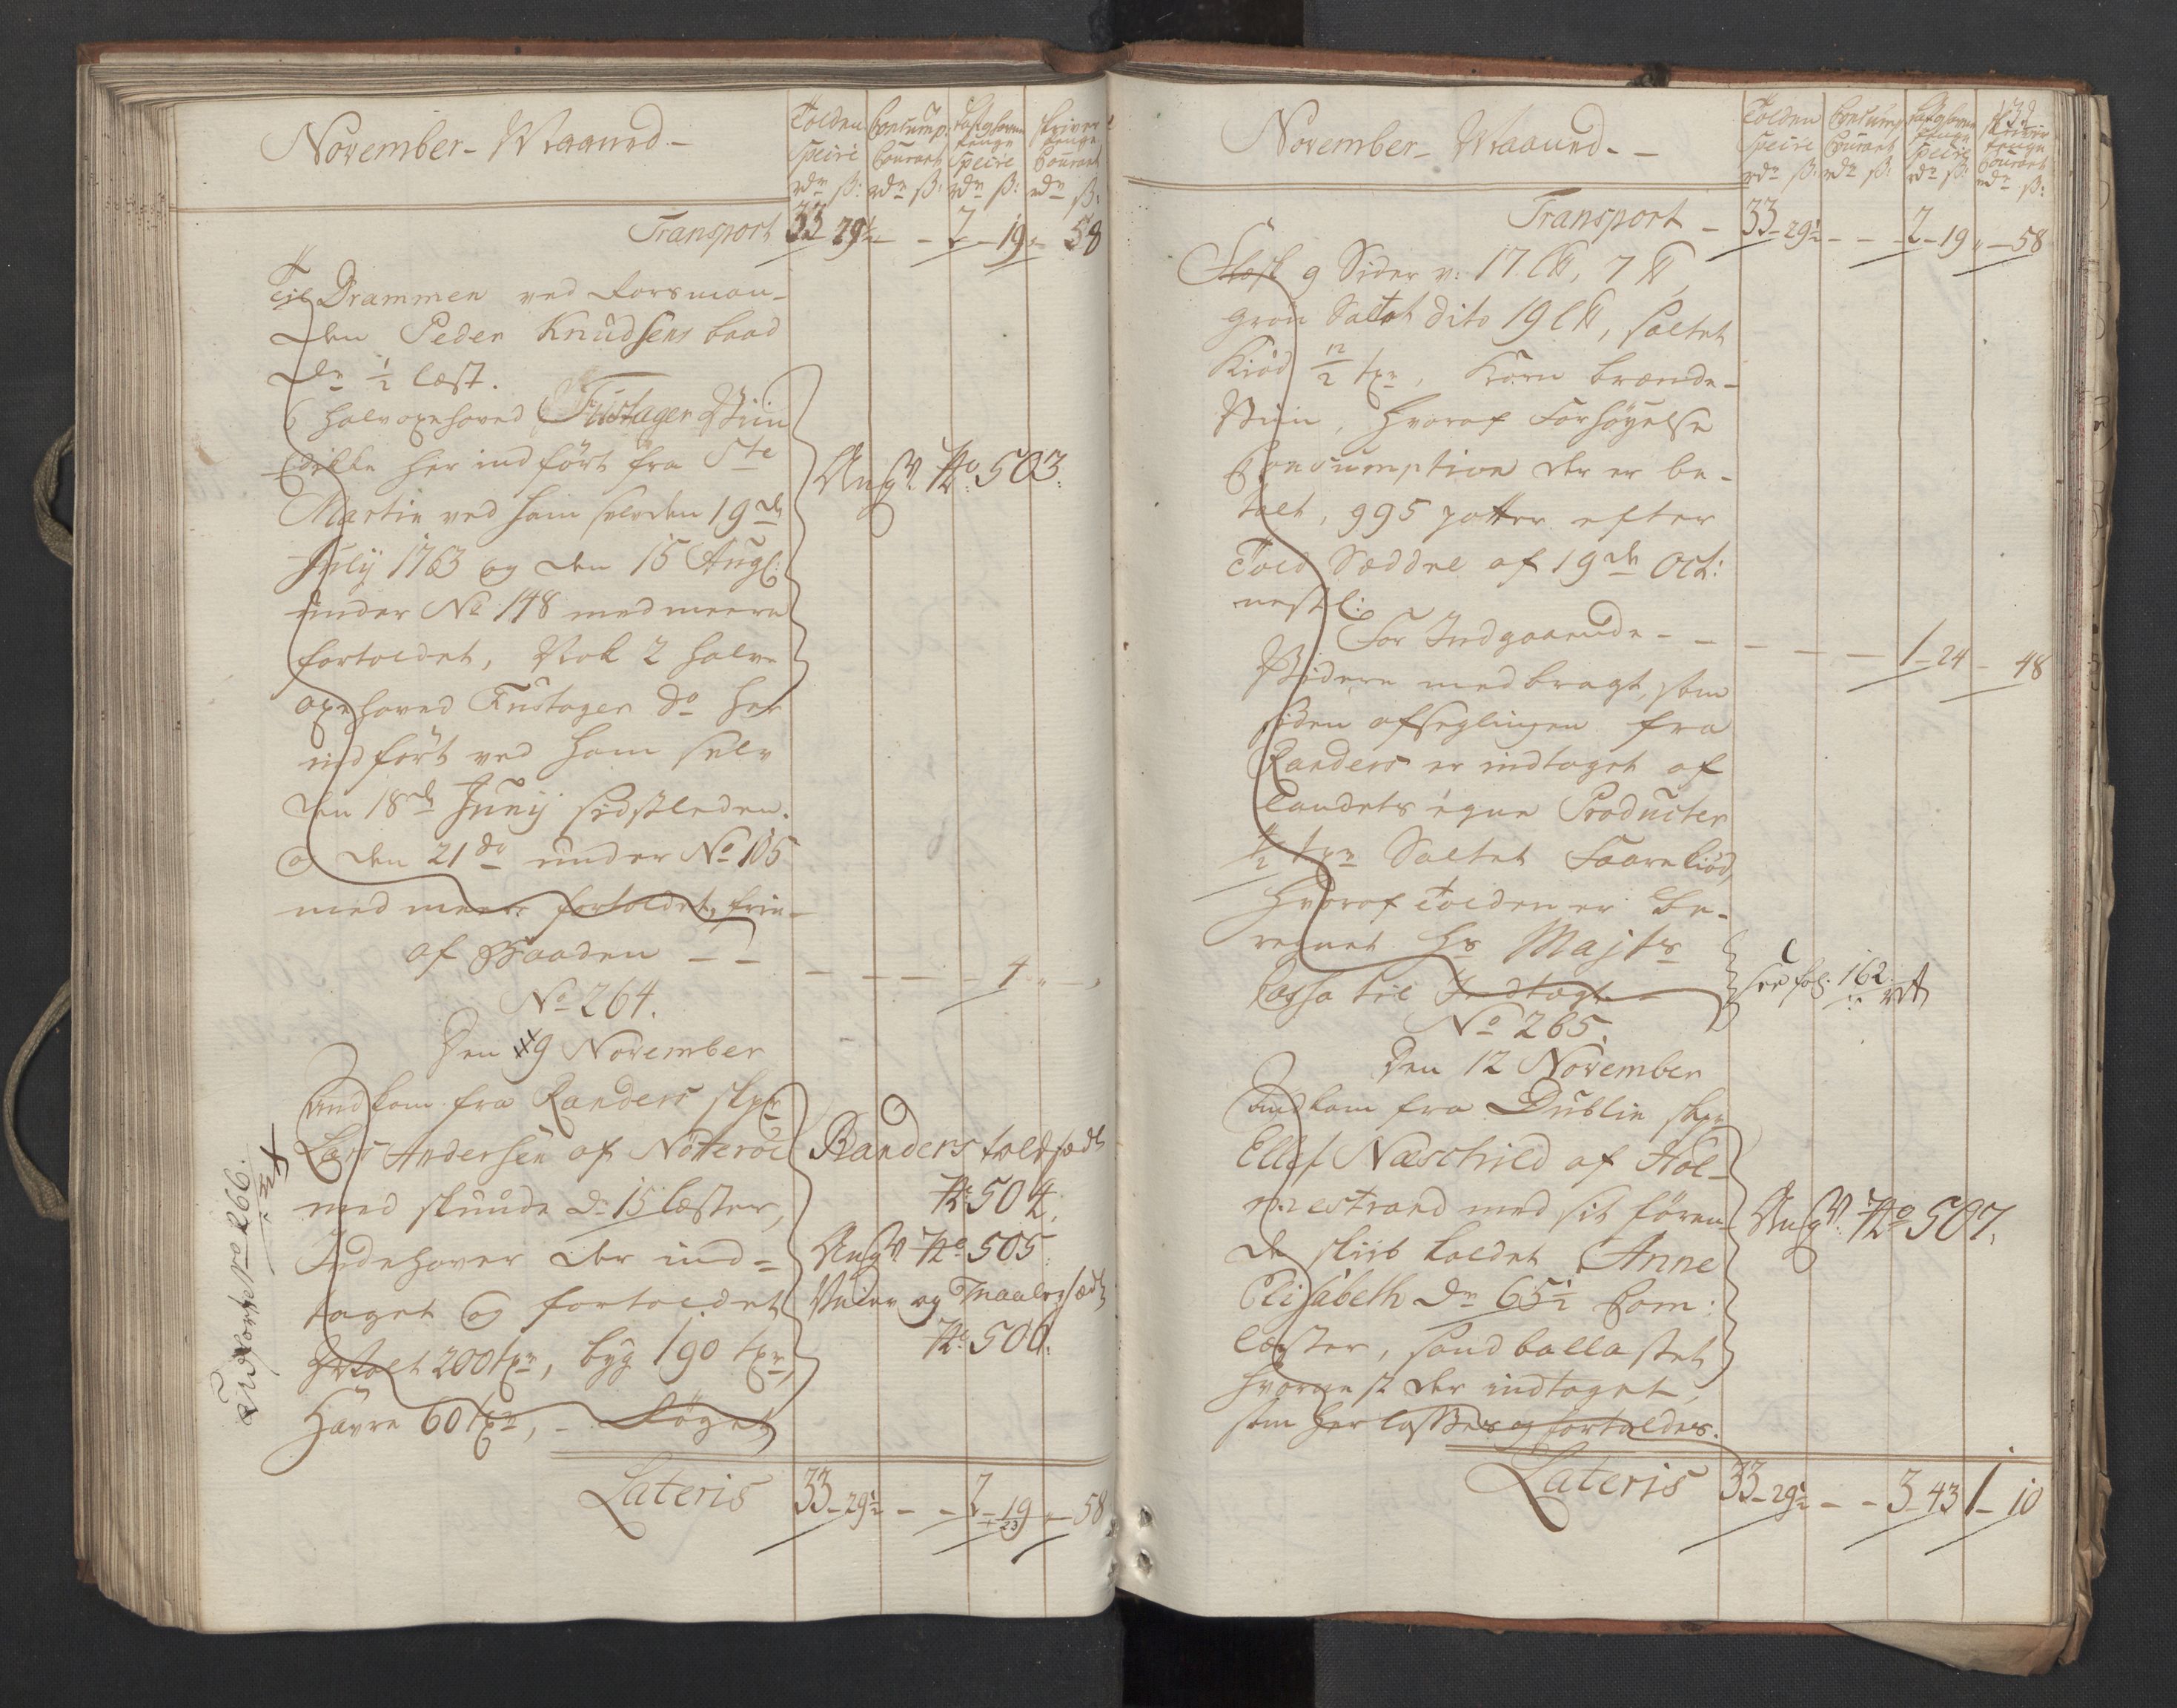 November Maaned
Tolden Specie rdr ß:
Consump: Courant rdr ß:
Lastg penge Specie rdr ß:
skriver penge Courant rdr ß:
Transport 33 29½ - - 2 - 19 " 58
Til Drammen ved
den Peder Knudsens baad
dr ½ læst.
6 halv oxehoved Fustager Viin
Edikke her indført fra Ste
Martin ved ham selv den 19de
July 1763 og den 15 Aug:
under No 148 med meere
fortoldet, Nok 2 halve
oxehoved Fustager do her
indført ved ham selv
den 18de Junij sidstleden
og den 21do under No 105
med meere fortoldet,
af Maaden - -
Angl. No: 503.
No 264.
Den 9 November
Indkom fra Randers skpr
Lars Andersen af Nøtteröe
med skuude dr 15 læster,
Indehaver der ind=
taget og fortoldet
Malt 200 tpr, byg 190 tpr,
Havre 60 tpr, - Röget
Randers toldsædl
No: 504.
Angl. No 505.
Veier og Maalersædl
No: 506.
Udført No 266.
Lateris 33 - 29½ - - 2 - 19 " 58
November Maaned
132
Tolden Specie rdr ß:
Consump Courant rdr ß:
Lastg penge Specie rdr ß:
skriver penge Courant rdr ß:
Transport - 33 - 29½ - - 2 - 19 " - 58
Flæsk 9 Sider v: 17 L℔, 7 ℔,
grön Saltet dito 19 L℔, saltet
Kiöd 12/2 tpr, Korn brænde-
Viin, hvoraf Forhöyelse
Consumption der er be-
talt, 995 potter efter
Told Sæddel af 19de Oct:
nestl:
For Indgaaende - - - - - 1 - 24 - 48
Videre medbragt, som
siden afseglingen fra
Randers er indtaget af
landets egne Producter
½ tpr Saltet Faarekiöd,
hvoraf tolden er be-
regnet Hs Majts
Cassa til Indtægt
see fol: 162.
No 265.
Den 12 November
Indkom fra Dublin skpr
Ellef Næschild af Hol-
mestrand med sit füren-
de skib kaldet Anne
Elisabeth dr 65½ Com:
læster, sand ballastet
hvornest der indtaget,
som her losses og fortoldes.
Angl. No 507.
Lateris 33 - 29½ - - 3 - 43 1 - 10